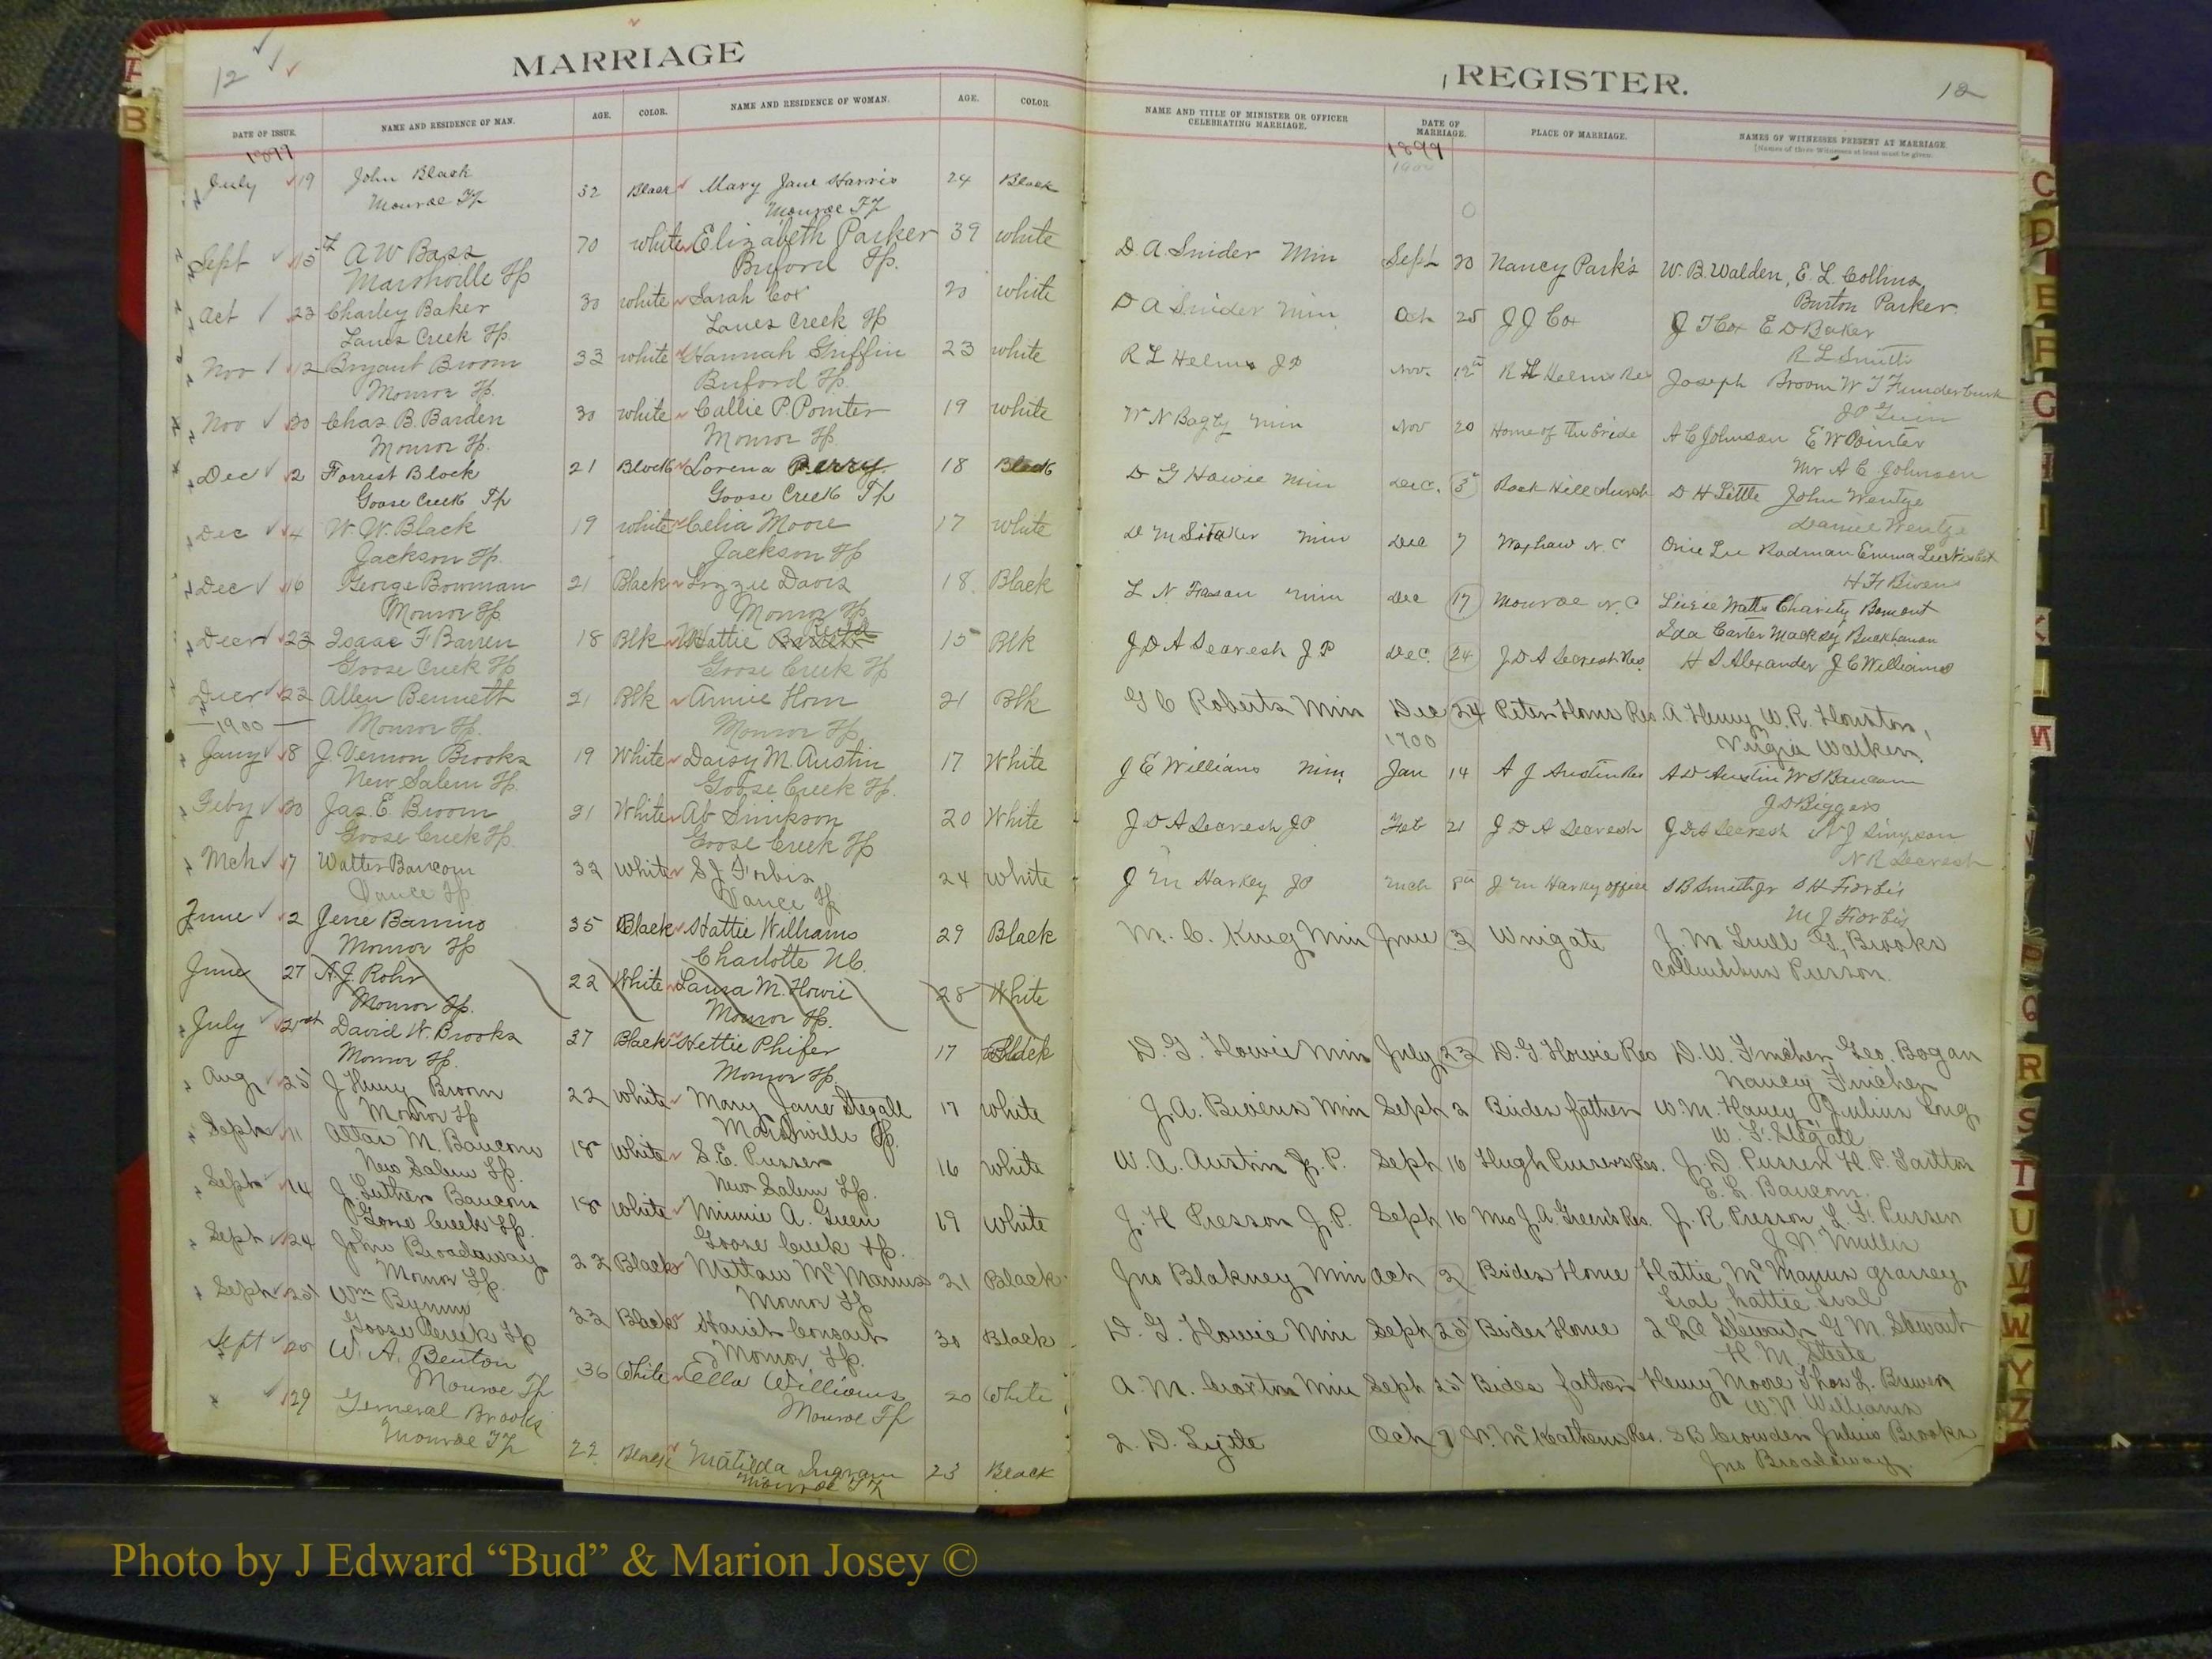 12
MARRIAGE
DATE OF ISSUE. NAME AND RESIDENCE OF MAN. AGE. COLOR. NAME AND RESIDENCE OF WOMAN. AGE. COLOR.
1899
July 19 John Black 32 Black Mary Jane Harris 24 Black
Monroe Tp Monroe Tp
Sept 15 A W Bass 70 white Elizabeth Parker 39 white
Marshville Tp Buford Tp.
Oct 23 Charley Baker 30 white Sarah Cox 20 white
Lanes Creek Tp. Lanes Creek Tp
Nov 12 Bryant Broom 33 white Hannah Griffin 23 white
Monroe Tp. Buford Tp.
Nov 30 Chas. B. Barden 30 white Callie P. Pointer 19 white
Monroe Tp. Monroe Tp.
Dec 2 Forrest Block 21 Block Lorena Perry 18 Block
Goose Creek Tp Goose Creek Tp
Dec 4 W. W. Black 19 white Celia Moore 17 white
Jackson Tp. Jackson Tp
Dec 16 George Bowman 21 Black Lizzie Davis 18 Black
Monroe Tp Monroe Tp
Decr 23 Isaac F Barren 18 Blk Mattie 15 Blk
Goose Creek Tp Goose Creek Tp
Decr 23 Allen Bennett 21 Blk Annie Horn 21 Blk
—1900— Monroe Tp. Monroe Tp
Jany 8 J. Vernon Brooks 19 White Daisy M. Austin 17 White
New Salem Tp. Goose Creek Tp.
Feby 20 Jas. E. Broom 21 White Ab Simpson 20 White
Goose Creek Tp. Goose Creek Tp
Mch 7 Walter Baucom 32 White S J Forbis 24 White
Vance Tp Vance Tp
June 2 Jene Barrino 35 Black Hattie Williams 29 Black
Monroe Tp Charlotte N.C.
June 27 A. J. Rohr 22 White Laura M. Howie 28 White
Monroe Tp. Monroe Tp.
July 21st David W. Brooks 37 Black Hettie Phifer 17 Black
Monroe Tp. Monroe Tp.
Aug 25 J Henry Broom 22 white Mary Jane Stegall 17 white
Monroe Tp Marshville Tp.
Sept 11 Altas M. Baucom 18 White S. E. Pusser 16 white
New Salem Tp. New Salem Tp.
Sept 14 J. Luther Baucom 18 white Minnie A. Green 19 white
Goose Creek Tp. Goose Creek Tp.
Sept 24 John Broadaway 22 Black McManus 21 Black
Monroe Tp. Monroe Tp
Sept 25 Wm Bynum 33 Black Hariet 30 Black
Goose Creek Tp Monroe Tp.
Sept 25 W. A. Benton 36 White Ella Williams 20 White
Monroe Tp Monroe Tp
29 General Brooks 22 Black Matilda Ingram 23 Black
Monroe Tp Monroe Tp
REGISTER. 12
NAME AND TITLE OF MINISTER OR OFFICER CELEBRATING MARRIAGE. DATE OF MARRIAGE. PLACE OF MARRIAGE. NAMES OF WITNESSES PRESENT AT MARRIAGE
[Names of three Witnesses at least must be given.
1899
1900
D A Snider Min Sept 20 Nancy Park's W. B. Walden, E. L. Collins
Burton Parker
D A Snider Min Oct 25 J J Cox J T Cox E D Baker
R L Smith
R L Helms J P Nov. 12th R L Helms Res Joseph Broom W T Funderburk
W N Bagby Min Nov 20 Home of the bride A C Johnson E W Pointer
Mr A C Johnson
D G Howie Min Dec. 3 Rock Hill church D H Little John Wentze
Daniel Wentze
D M Sitaker Min Dec 7 Waxhaw N. C Onie Lee Rodman Emma Lee Nesbet
H F Bivens
L N Fasan Min Dec 17 Monroe N. C Lizzie Watts Charity Bomont
Ida Carter Macksey Buckhanan
J D A Secresh J P Dec. 24 J D A Secresh Res. H S Alexander J C Williams
G C Roberts Min Dec 24 Peter Horns Res. A Henry W. R. Houston,
1900 Virgia Walker
J E Williams Min Jan 14 A J Austin Res A D Austin W S Baucom
J D Biggers
J D A Secresh J P Feb 21 J D A Secresh J D A Secresh N J Simpson
N R Secresh
J M Harkey J P Mch 8th J M Harky office S B Smith Jr S H Forbis
M J Forbis
M. C. King Min June 3 Wingate J. M. G. Brooks
Person.
D. G. Howie Min July 22 D. G. Howie Res D. W. Fincher Geo. Bogan
Nancy Fincher
J. A. Bivens Min Sept 2 Brides father W. M. Haney Julius Long
W. F. Stegall
W. A. Austin J. P. Sept 16 Hugh Pussers Res. J. D. Pusser H. P. Tarlton
E. L. Baucom.
J. H. Presson J. P. Sept 16 Mrs J. A. Green's Res. J. R. Presson L. F. Pusser
J. V. Mullis
Jno Blakney Min Oct 2 Brides Home Hattie McManus
Hattie
D. G. Howie Min Sept 25 Brides Home Stewart G M. Stewart
H. M. Steele
A. M. Croxton Min Sept 25 Brides father Henry Moore Thos L. Brewer
W. V. Williams
L. D. Lytle Oct 7 Res. S B Crowder Julius Brooks
Jno Broadaway.
B
C
D
E
F
G
H
I
K
N
Q
R
S
T
U
V
W
Y
Z
Photo by J Edward “Bud” & Marion Josey ©